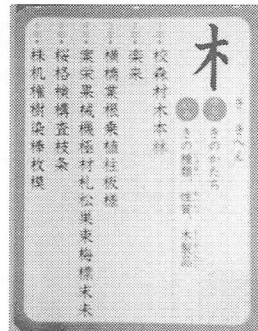 木
き きへん
きのかたち
きの種類 性質、木製品
校森村木本林
楽来
横橋業根乗植柱板様
案栄果械機極材札松巣束梅標末未
桜格検構査枝条
株机権樹染棒枚模